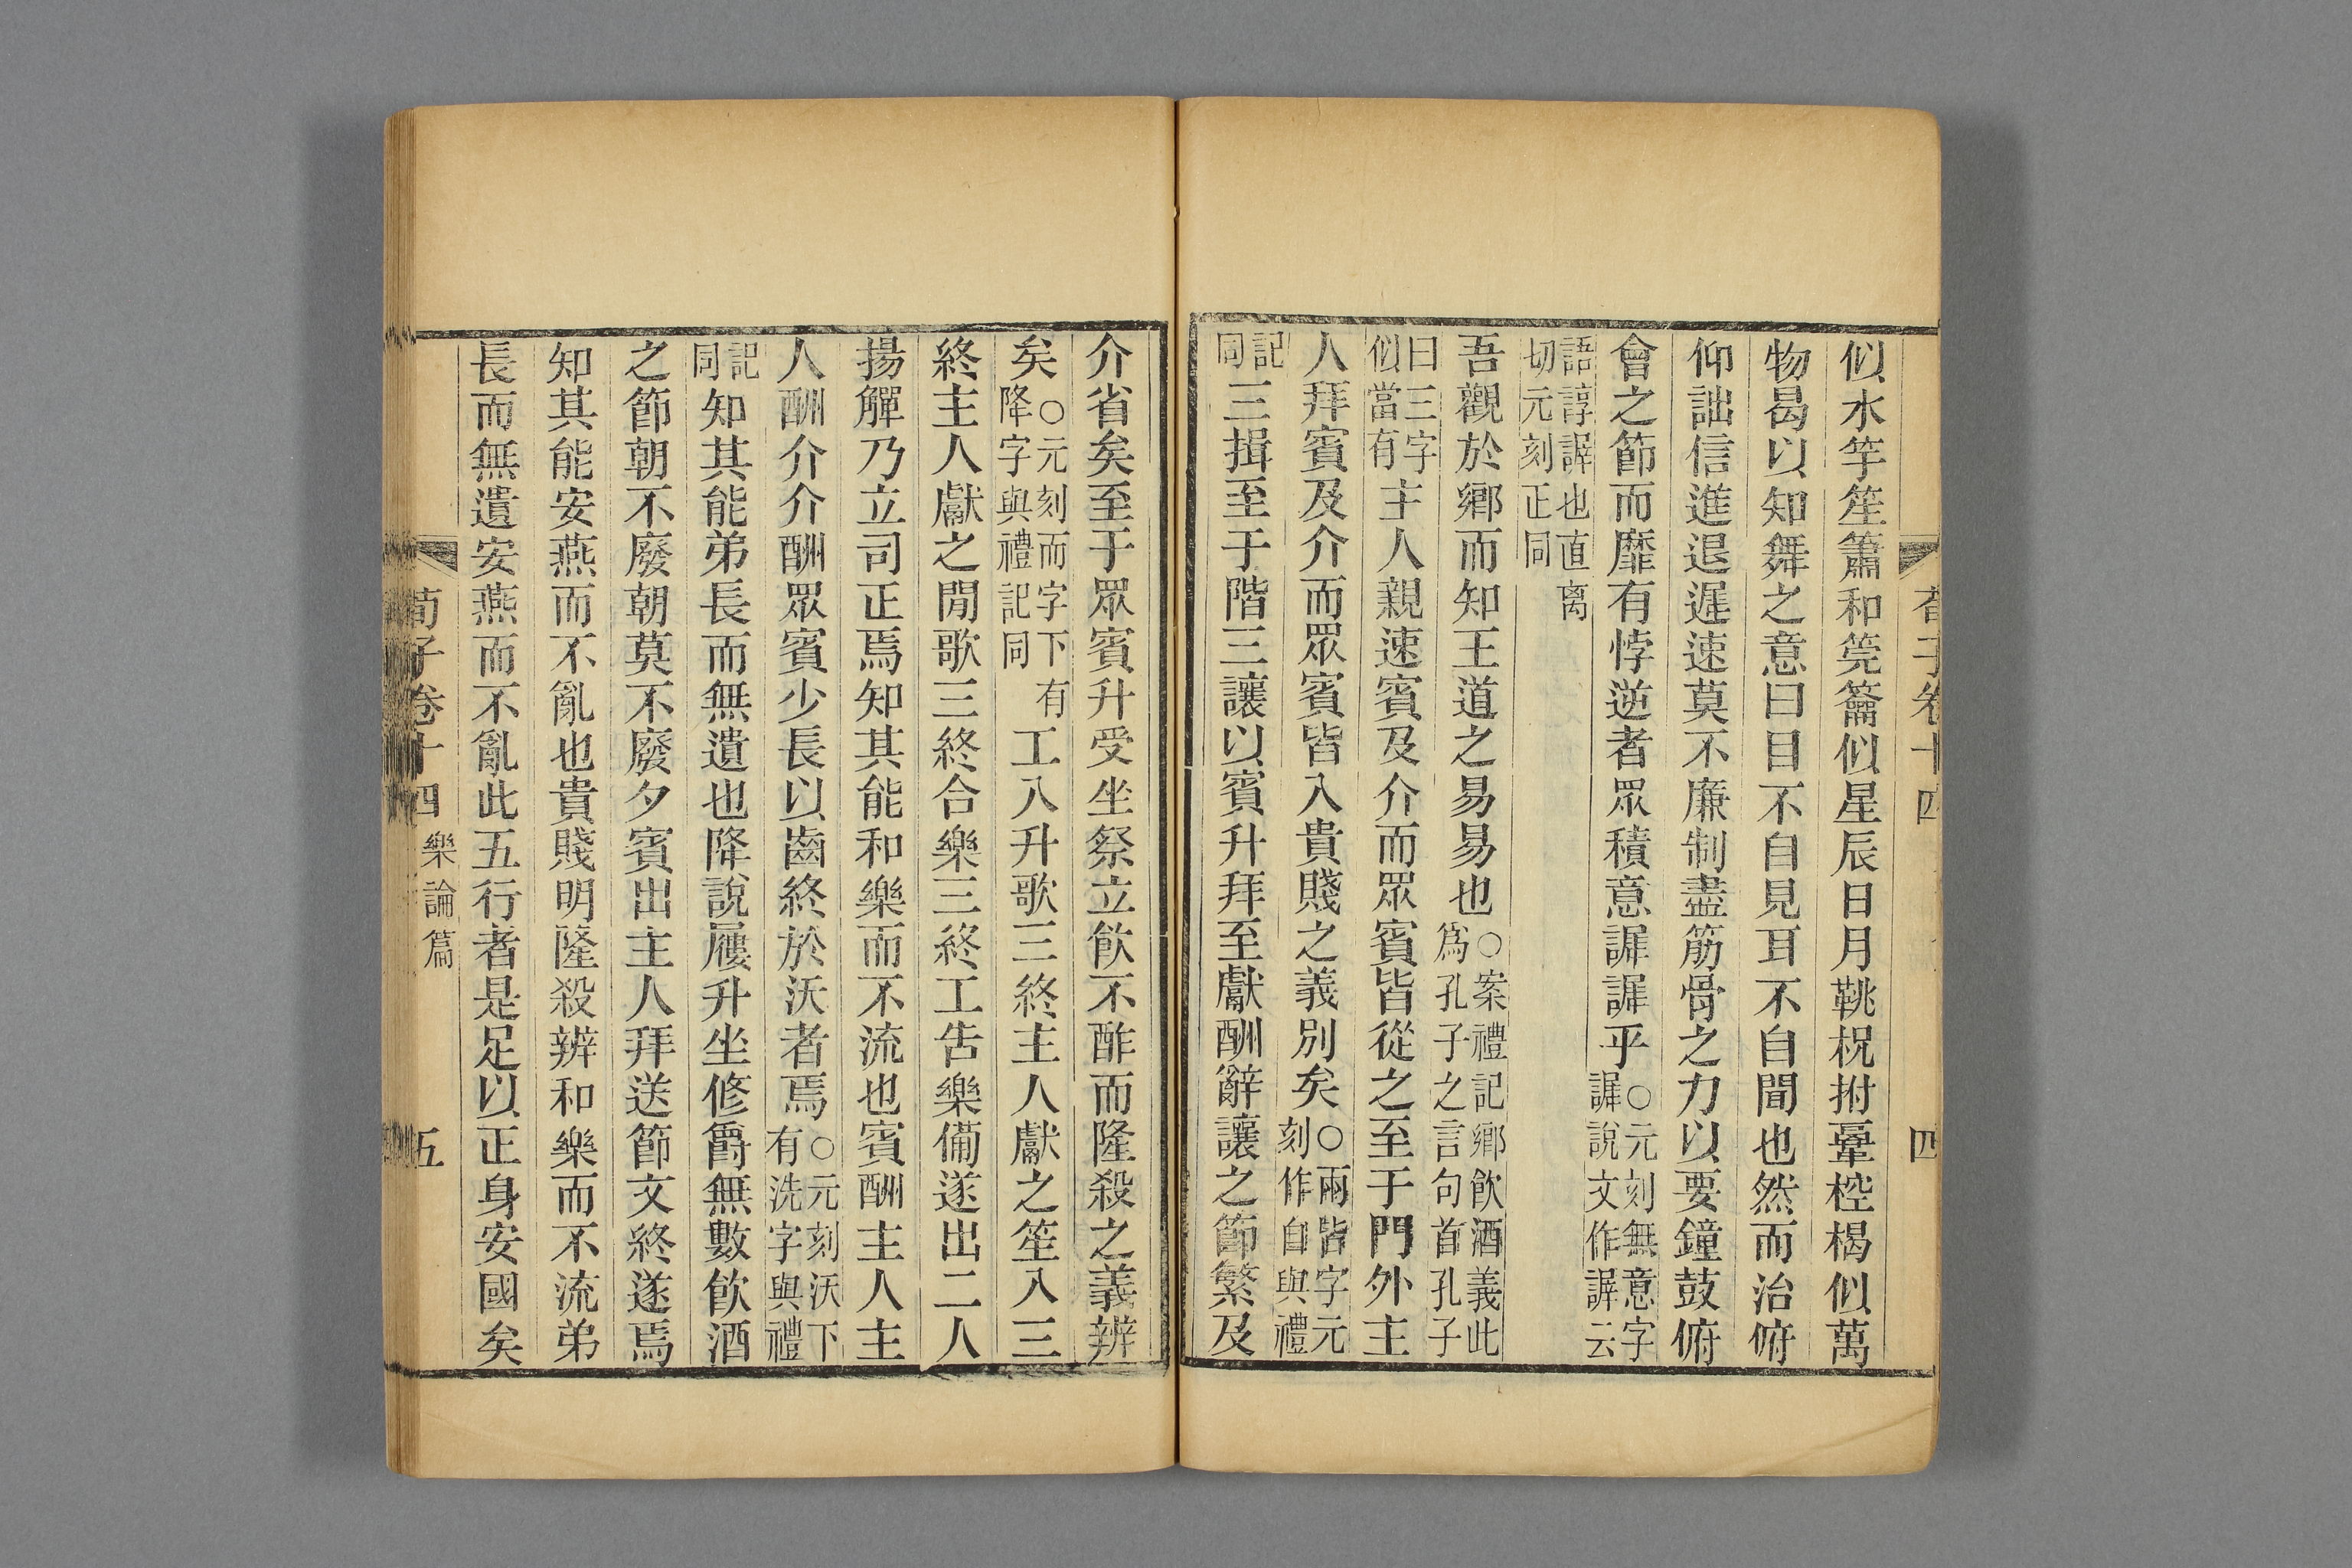 似水竽笙簫和筦籥似星辰日月鞉柷拊鞷椌楬似萬
物曷以知舞之意曰目不自見耳不自聞也然而治俯
仰詘信進退遲速莫不廉制盡筋骨之力以要鐘鼓俯
會之節而靡有悖逆者眾積意謘謘乎○元刻無意字謘說文作謘云
語諄謘也直离切元刻正同
吾觀於鄉而知王道之易易也○案禮記鄉飲酒義此為孔子之言句首孔子
曰三字似當有主人親速賓及介而眾賓皆從之至于門外主
人拜賓及介而眾賓皆入貴賤之義別矣○兩皆字元刻作自與禮
記同三揖至于階三讓以賓升拜至獻酬辭讓之節繁及
荀子卷十四 四
介省矣至于眾賓升受坐祭立飲不酢而隆殺之義辨
矣○元刻而字下有降字與禮記同工入升歌三終主人獻之笙入三
終主人獻之閒歌三終合樂三終工告樂備遂出二人
揚觶乃立司正焉知其能和樂而不流也賓酬主人主
人酬介介酬眾賓少長以齒終於沃者焉○元刻沃下有洗字與禮
記同知其能弟長而無遺也降說屨升坐修爵無數飲酒
之節朝不廢朝莫不廢夕賓出主人拜送節文終遂焉
知其能安燕而不亂也貴賤明隆殺辨和樂而不流弟
長而無遺安燕而不亂此五行者是足以正身安國矣
荀子卷十四 樂論篇 五